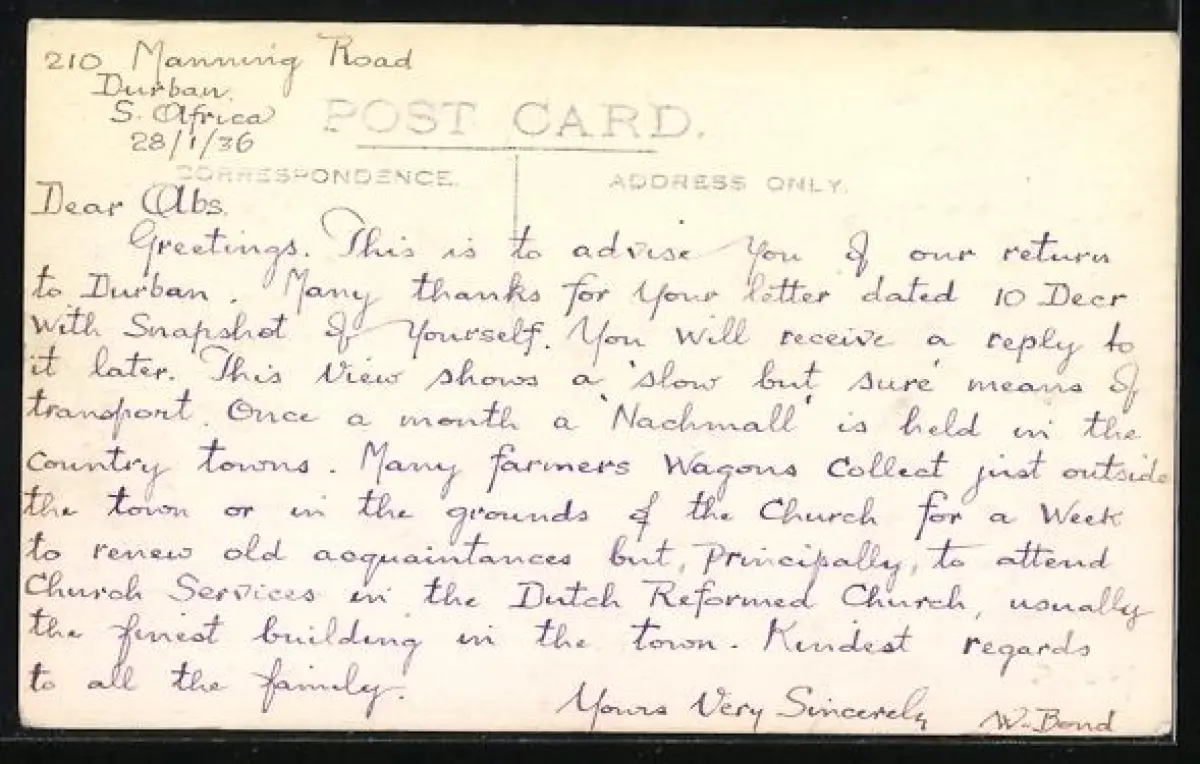 210 Manning Road
Durban.
S. Africa
28/1/36
POST CARD.
CORRESPONDENCE.
ADDRESS ONLY.
Dear Abs.
Greetings. This is to advise you of our return
to Durban. Many thanks for your letter dated 10 Decr
with Snapshot of yourself. You will receive a reply to
it later. This view shows a 'slow but sure' means of
transport. Once a month a 'Nachmall' is held in the
Country towns. Many farmers Wagons Collect just outside
the town or in the grounds of the Church for a Week
to renew old acquaintances but, principally, to attend
Church Services in the Dutch Reformed Church, usually
the finest building in the town. Kindest regards
to all the family.
Yours Very Sincerely W. Bond